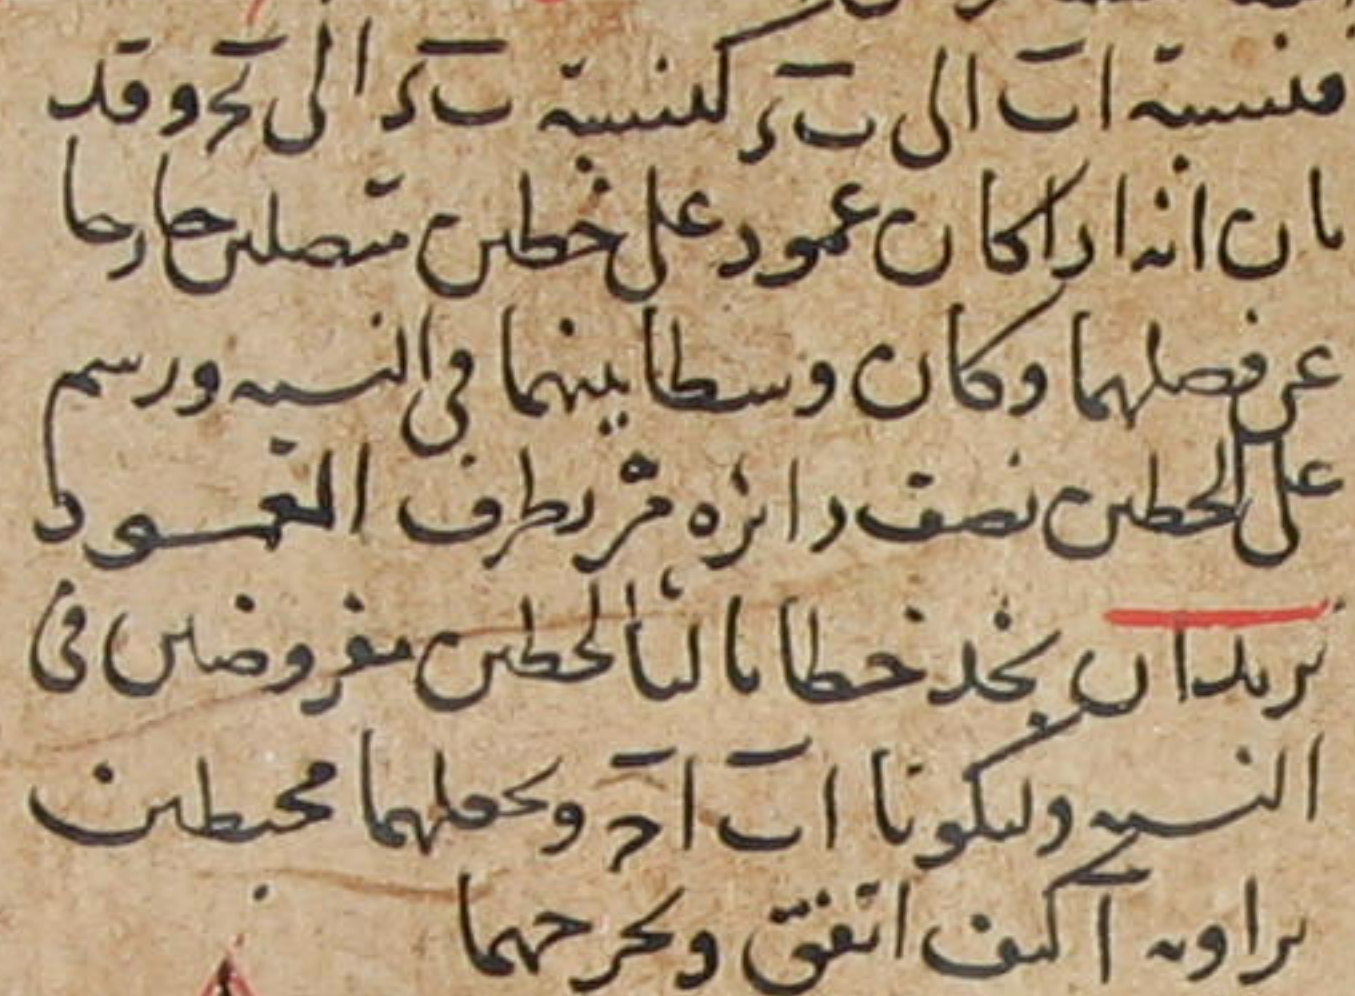 فنسبة اب الى ب ء كنسبة ب ء الى ء ح وقد
بان انه اذا كان عمود على خطين متصلين خارجا
عن فصلهما وكان وسطا بينهما في النسبة ورسم
على الخطين نصف دائرة مر بطرف العمود
نريد ان نجد خطا ثالثا لخطين مفروضين في
النسبة وليكونا اب اح ونجعلهما محيطين
بزاوية آ كيف اتفق ونخرجهما